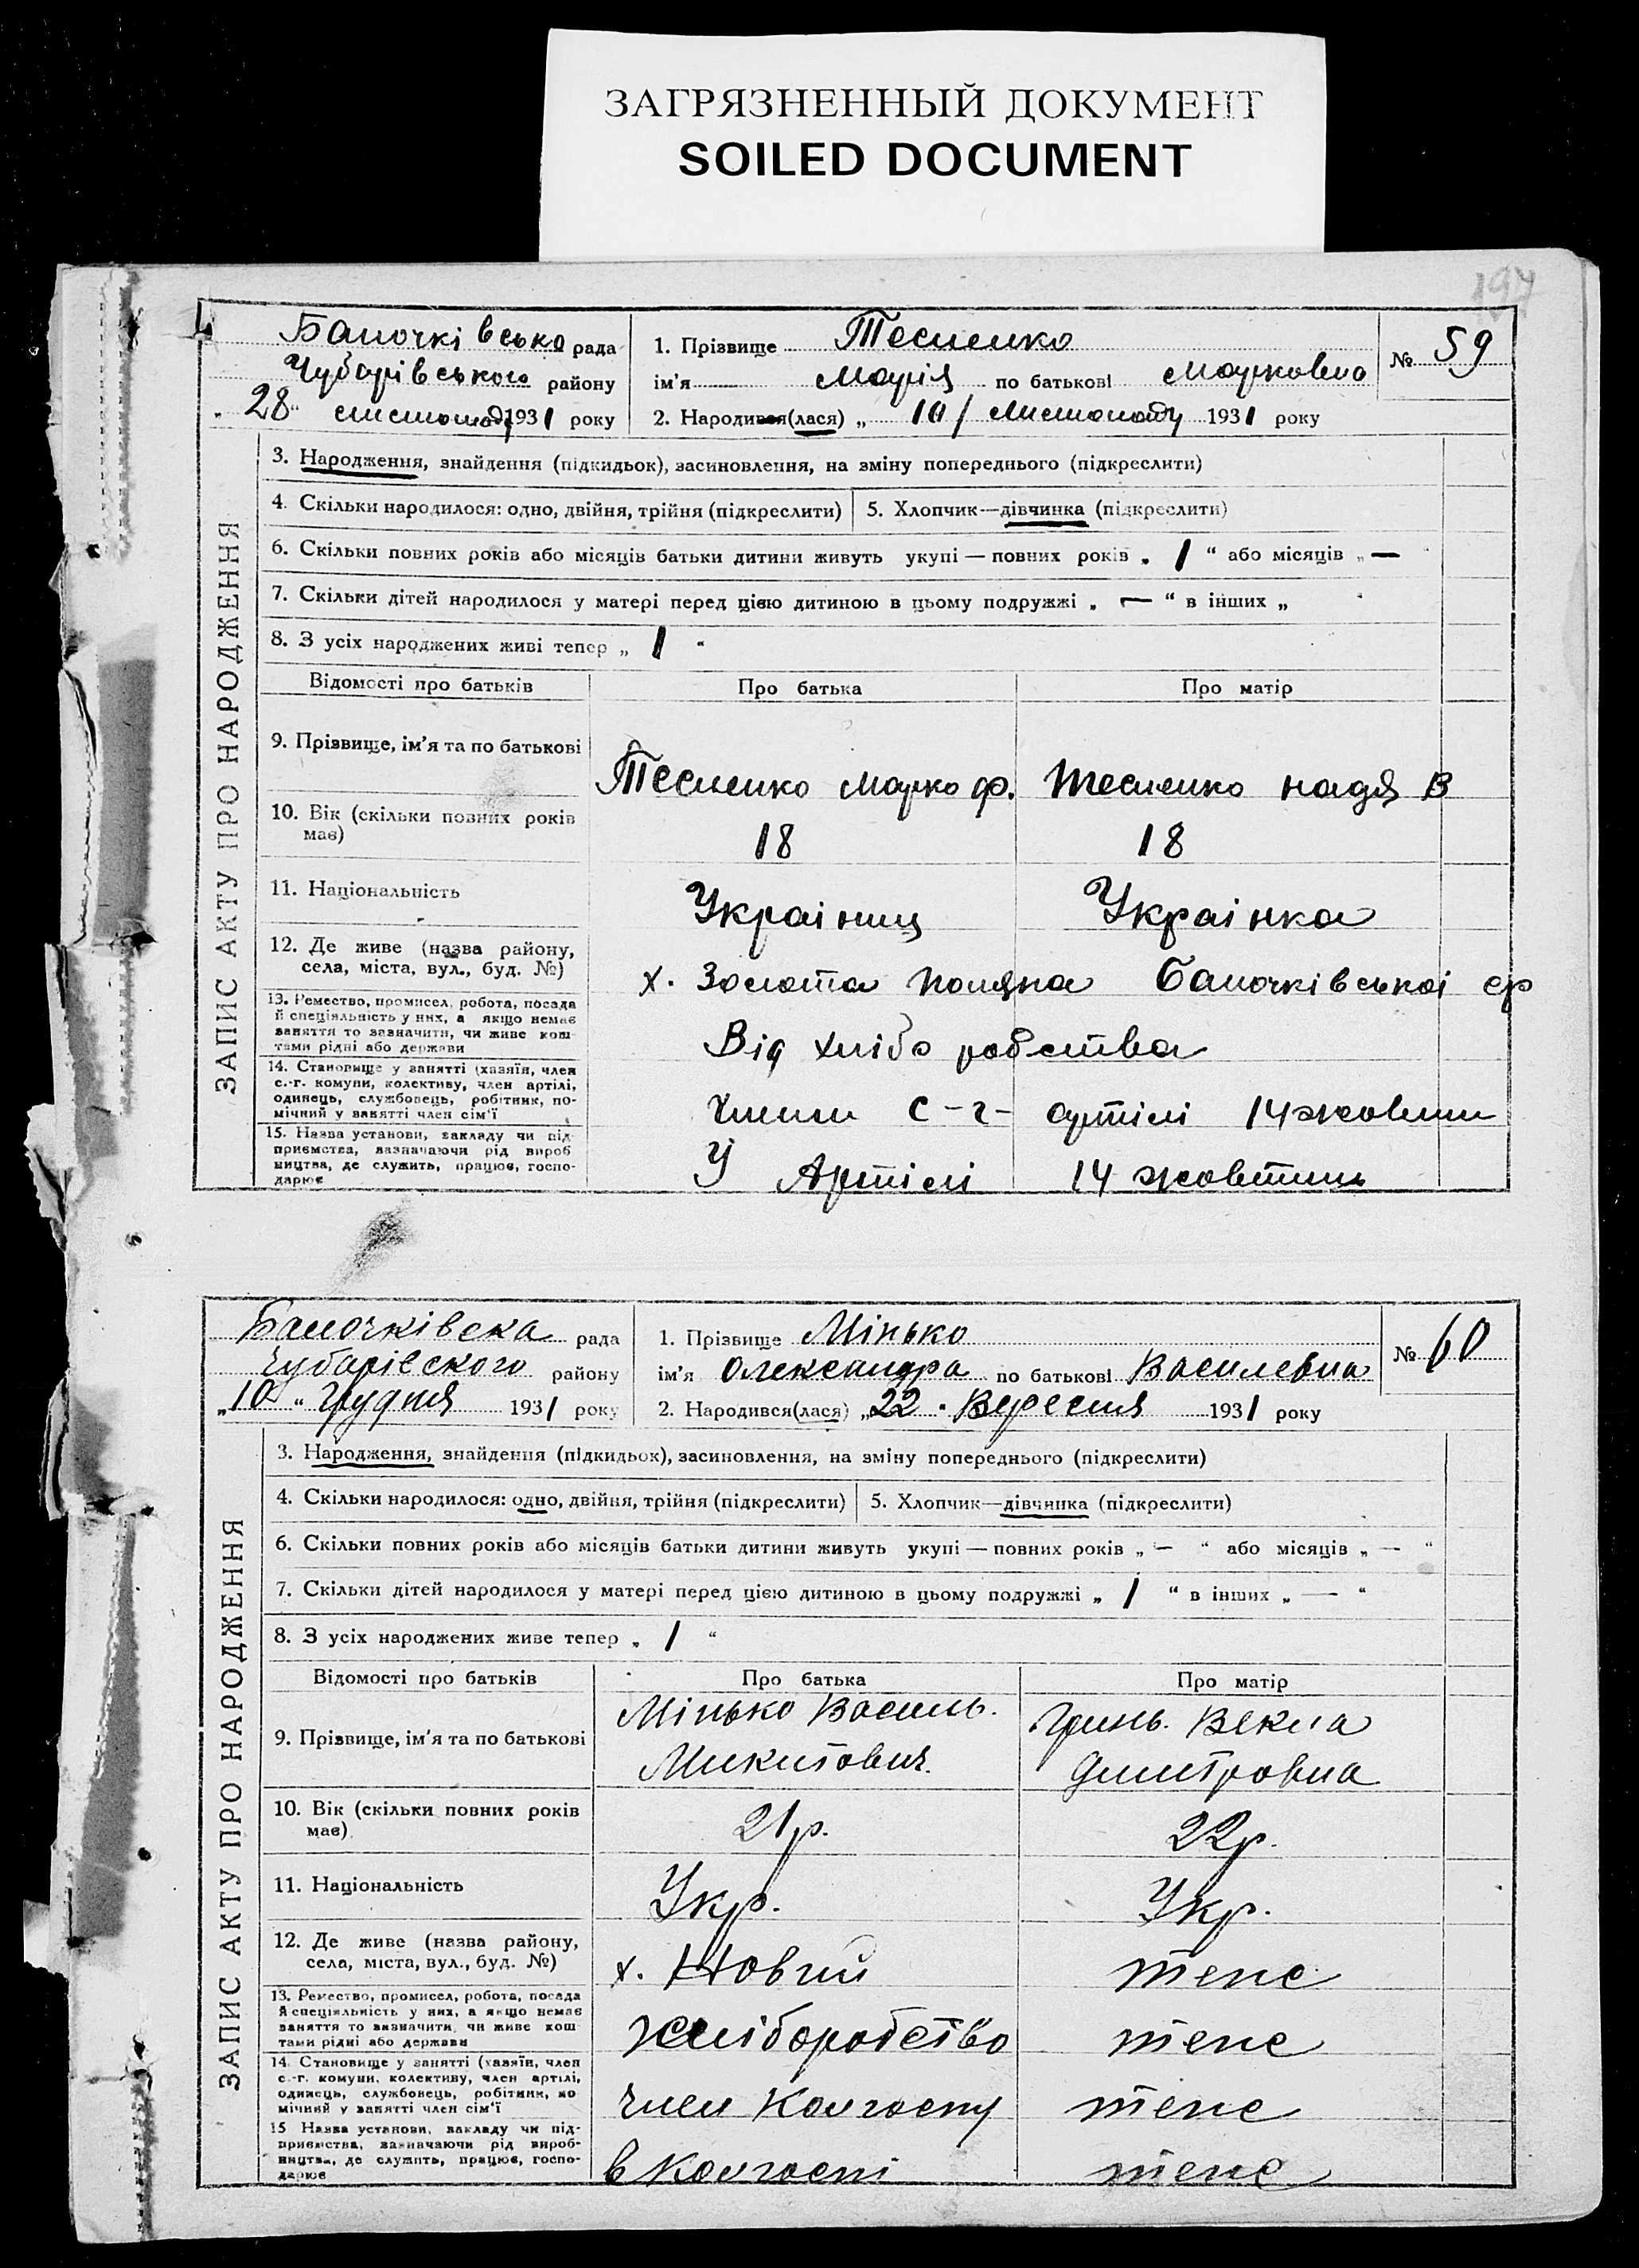 ЗАГРЯЗНЕННЫЙ ДОКУМЕНТ
SOILED DOCUMENT
197
ЗАПИС АКТУ ПРО НАРОДЖЕННЯ
Балочківська рада
Чубарівського району
„28“ листопаду 1931 року
1. Прізвище Тесленко
ім'я Марія по батькові Марковна
№ 59
2. Народився(лася) „ 10/ листопаду 1931 року
3. Народження, знайдення (підкидьок), засиновлення, на зміну попереднього (підкреслити)
4. Скільки народилося: одно, двійня, трійня (підкреслити) 5. Хлопчик—дівчинка (підкреслити)
6. Скільки повних років або місяців батьки дитини живуть укупі — повних років „ 1 “ або місяців „ —
7. Скільки дітей народилося у матері перед цією дитиною в цьому подружжі „ — “ в інших „
8. З усіх народжених живі тепер „ 1 “
Відомості про батьків Про батька Про матір
9. Прізвище, ім'я та по батькові Тесленко Марко Ф. Тесленко Надя В
10. Вік (скільки повних років має) 18 18
11. Національність Украінец Украінка
12. Де живе (назва району, села, міста, вул., буд. №) х. Золота Поляна Балочківськоі ср
13. Ремество, промисел, робота, посада й спеціяльність у них, а якщо немає заняття то зазначити, чи живе коштами рідні або держави Від хлібо робства
14. Становище у занятті (хазяїн, член с.-г. комуни, колективу, член артілі, одинець, службовець, робітник, помічний у занятті член сім'ї Члени с-г- артілі 14 жовтни
15. Назва установи, закладу чи підприємства, зазначаючи рід виробництва, де служить, працює, господарює У Артілі 14 жовтинь
ЗАПИС АКТУ ПРО НАРОДЖЕННЯ
Балочківска рада
Чубарівского району
„10“ Грудня 1931 року
1. Прізвище Мінько
ім'я Олександра по батькові Василевна
№ 60
2. Народився(лася) „22. Вересня 1931 року
3. Народження, знайдення (підкидьок), засиновлення, на зміну попереднього (підкреслити)
4. Скільки народилося: одно, двійня, трійня (підкреслити) 5. Хлопчик—дівчинка (підкреслити)
6. Скільки повних років або місяців батьки дитини живуть укупі — повних років „ — “ або місяців „ — “
7. Скільки дітей народилося у матері перед цією дитиною в цьому подружжі „ 1 “ в інших „ — “
8. З усіх народжених живе тепер „ 1 “
Відомості про батьків Про батька Про матір
9. Прізвище, ім'я та по батькові Мінько Василь. Микитович. Гринь. Векла Дмитровна
10. Вік (скільки повних років має) 21р. 22р.
11. Національність Укр. Укр.
12. Де живе (назва району, села, міста, вул., буд. №) х. Новий теже
13. Ремество, промисел, робота, посада й спеціяльність у них, а якщо немає заняття то зазначити, чи живе коштами рідні або держави хліборобство теже
14. Становище у занятті (хазяїн, член с.-г. комуни, колективу, член артілі, одинець, службовець, робітник, помічний у занятті член сім'ї член колгоспу теже
15 Назва установи, закладу чи підприємства, зазначаючи рід виробництва, де служить, працює, господарює в колгоспі теже